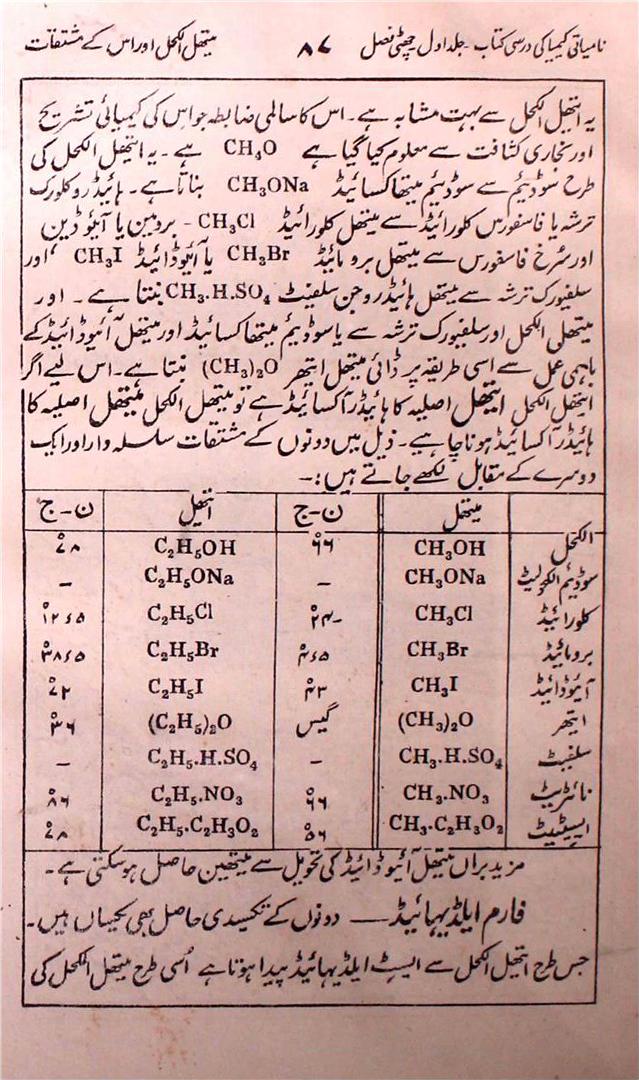 نامیاتی کیمیا کی درسی کتاب - جلد اول چھٹی فصل ۸۷ میتھل الکحل اور اس کے مشتقات
یہ ایتھل الکحل سے بہت مشابہ ہے۔ اس کا سالمی ضابطہ جو اس کی کیمیائی تشریح
اور بخاری کثافت سے معلوم کیا گیا ہے CH₄O ہے۔ یہ ایتھل الکحل کی
طرح سوڈیم سے سوڈیم میتھاکسائیڈ CH₃ONa بناتا ہے۔ ہائیڈروکلورک
ترشہ یا فاسفورس کلورائیڈ سے میتھل کلورائیڈ CH₃Cl - برومین یا آئیوڈین
اور سُرخ فاسفورس سے میتھل برومائیڈ CH₃Br یا آئیوڈائیڈ CH₃I ، اور
سلفیورک ترشہ سے میتھل ہائیڈروجن سلفیٹ CH₃.H.SO₄ بنتا ہے۔ اور
میتھل الکحل اور سلفیورک ترشہ سے یا سوڈیم میتھاکسائیڈ اور میتھل آئیوڈائیڈ کے
باہمی عمل سے اسی طریقہ پر ڈائی میتھل ایتھر (CH₃)₂O بنتا ہے۔ اس لیے اگر
ایتھل الکحل ایتھل اصلیہ کا ہائیڈر آکسائیڈ ہے تو میتھل الکحل میتھل اصلیہ کا
ہائیڈر آکسائیڈ ہونا چاہیے۔ ذیل میں دونوں کے مشتقات سلسلہ وار اور ایک
دوسرے کے مقابل لکھے جاتے ہیں :۔
میتھل ن-ج ایتھل ن-ج
الکحل CH₃OH ۶۶° C₂H₅OH ۷۸°
سوڈیم الکحولیٹ CH₃ONa – C₂H₅ONa –
کلورائیڈ CH₃Cl -۲۴° C₂H₅Cl ۱۲٫۵°
برومائیڈ CH₃Br ۴٫۵° C₂H₅Br ۳۸٫۵°
آئیوڈائیڈ CH₃I ۴۳° C₂H₅I ۷۲°
ایتھر (CH₃)₂O گیس (C₂H₅)₂O ۳۶°
سلفیٹ CH₃.H.SO₄ – C₂H₅.H.SO₄ –
نائٹریٹ CH₃.NO₃ ۶۶° C₂H₅.NO₃ ۸۶°
ایسیٹیٹ CH₃.C₂H₃O₂ ۵۶° C₂H₅.C₂H₃O₂ ۷۸°
مزید براں میتھل آئیوڈائیڈ کی تحویل سے میتھین حاصل ہو سکتی ہے۔
فارم ایلڈیہائیڈ — دونوں کے تکسیدی حاصل بھی یکساں ہیں۔
جس طرح ایتھل الکحل سے ایسٹ ایلڈیہائیڈ پیدا ہوتا ہے اُسی طرح میتھل الکحل کی